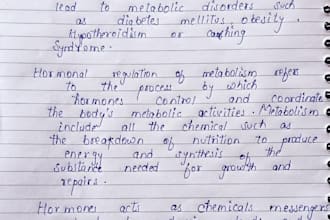 lead to metabolic disorders such
as diabetes mellitus obesity.
Hypothyroidism or cushing
Syndrome.
Hormonal regulation of metabolism refers
to the process by which
hormones control and coordinate
the body's metabolic activities. Metabolism
include all the chemical such as
the breakdown of nutrition to produce
energy and synthesis of the
substance needed for growth and
repairs.
Hormones acts as chemicals messengers